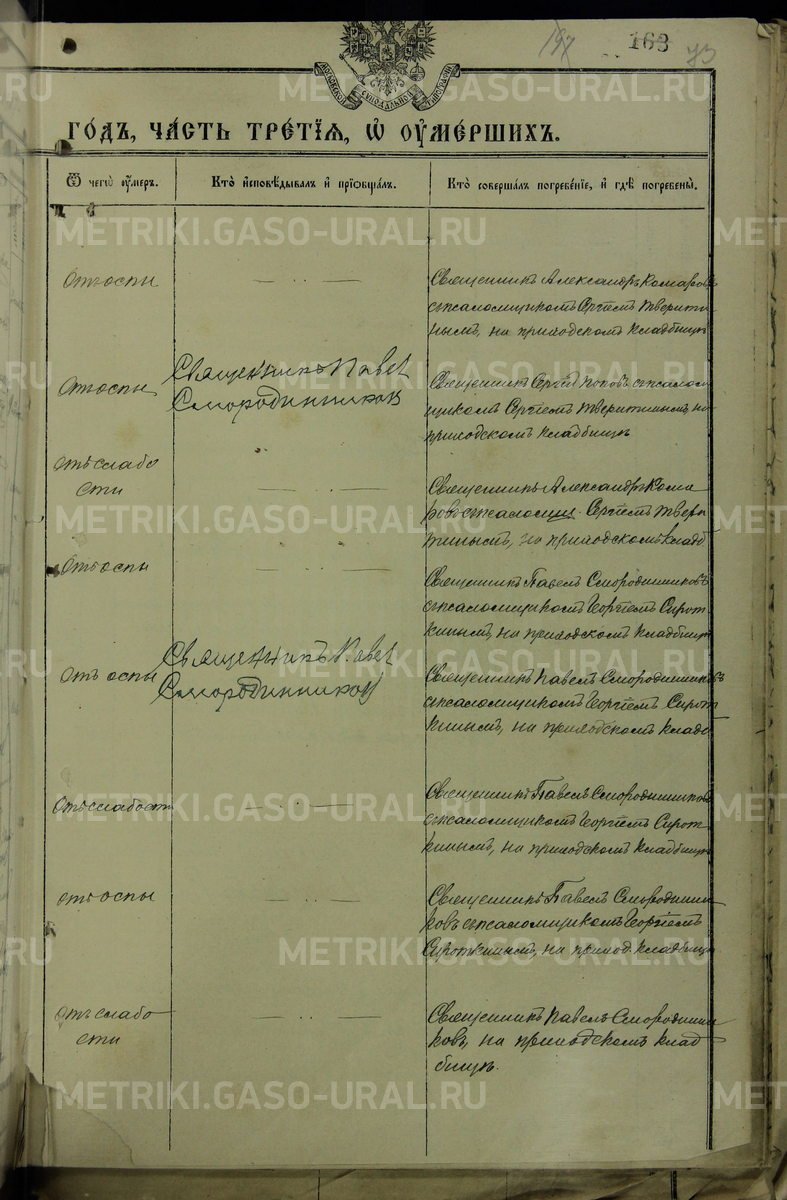 197 163 73
МОСКОВСКОЙ СѴНОДАЛЬНОЙ ТИПОГРАФІИ
ГО́ДЪ, ЧА́СТЬ ТРЕ́ТІѦ, Ѡ҆ ОУ҆МЕ́РШИХЪ.
Ѿ чегѡ̀ оу҆́меръ.
Кто̀ и҆сповѣ́дывалъ и҆ прїѡбща́лъ.
Кто̀ соверша́лъ погребе́нїе, и҆ гдѣ̀ погребены̀.
Отъ оспы
— · · —
Священникъ Александръ Комаровъ
съ псаломщикомъ Сергіемъ Тверити-
нымъ, на приходскомъ кладбищѣ
Отъ оспы
Священникъ Павел
Смородинников
Священникъ Сергій Поповъ съ псалом
щикомъ Сергіемъ Тверитинымъ, на
приходскомъ кладбищѣ
Отъ слабо
сти
— · · —
Священникъ Александръ Кома
ровъ съ псаломщ. Сергіемъ Твери
тинымъ, на приходскомъ кладб
Отъ оспы
— · · —
Священникъ Павелъ Смородинниковъ
съ псаломщикомъ Георгіемъ Сирот-
кинымъ, на приходскомъ кладбищѣ
Отъ оспы
Священникъ Павел
Смородинников
Священникъ Павелъ Смородинниковъ
съ псаломщикомъ Георгіемъ Сирот
кинымъ, на приходскомъ кладб
Отъ слабости
— · · —
Священникъ Павелъ Смородинниковъ
съ псаломщикомъ Георгіемъ Сирот-
кинымъ, на приходскомъ кладбищѣ
Отъ оспы
— · · —
Священникъ Павелъ Смородинни
ковъ съ псаломщикомъ Георгіемъ
Сироткинымъ, на приход. кладбищѣ
Отъ слабо
сти
— · · —
Священникъ Павелъ Смородинни
ковъ, на приходскомъ клад
бищѣ.
METRIKI.GASO-URAL.RU